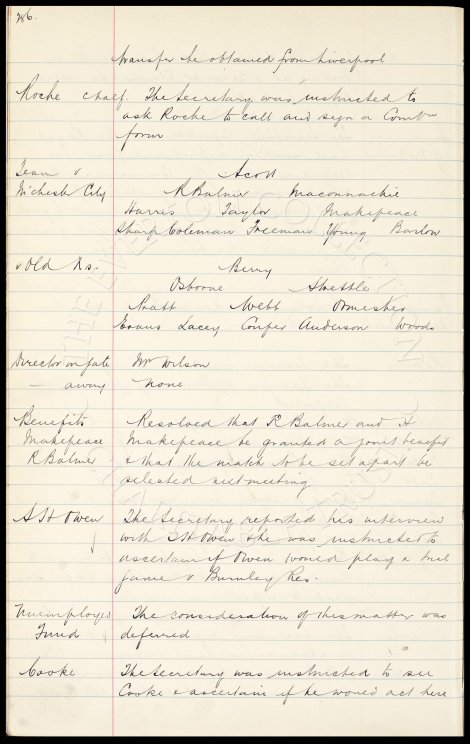 286.
transfer be obtained from Liverpool
Roche
The Secretary was instructed to
ask Roche to call and sign a Comtn
form
Team v
M'chester City
Scott
R Balmer Maconnachie
Harris Taylor Makepeace
Sharp Coleman Freeman Young Barlow
v Old Xs.
Berry
Osborne Strettle
Pratt Webb Ormesher
Evans Lacey Cooper Anderson Woods
Director on gate Mr Wilson
— away None
Benefits
Makepeace
R Balmer
Resolved that R Balmer and H
Makepeace be granted a joint benefit
& that the match to be set apart be
selected next meeting
S H Owen
The Secretary reported his interview
with S H Owen & he was instructed to
ascertain if Owen would play a trial
game v Burnley Res.
Unemployed
Fund
The consideration of this matter was
deferred
Cooke
The Secretary was instructed to see
Cooke & ascertain if he would act here
THE EVERTON COLLECTION
CHARITABLE TRUST